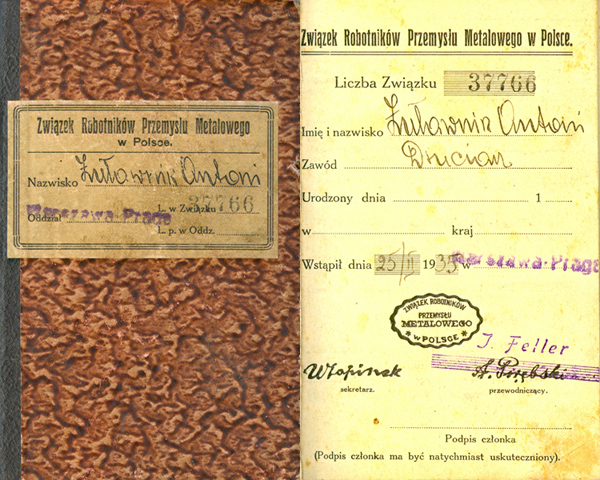 Związek Robotników Przemysłu Metalowego
w Polsce.
Nazwisko Żuławnik Antoni
L. w Związku 37766
Oddział Warszawa-Praga
L. p. w Oddz.
Związek Robotników Przemysłu Metalowego w Polsce.
Liczba Związku 37766
Imię i nazwisko Żuławnik Antoni
Zawód
Urodzony dnia 1
w kraj
Wstąpił dnia 25/II 1935 w Warszawa-Praga
ZWIĄZEK ROBOTNIKÓW
PRZEMYSŁU
METALOWEGO
W POLSCE
J. Feller
sekretarz.
przewodniczący.
Podpis członka
(Podpis członka ma być natychmiast uskuteczniony).